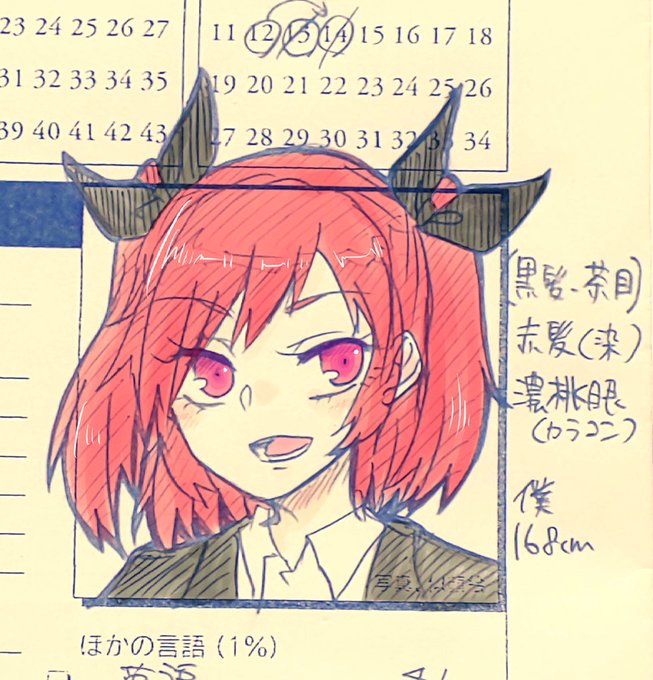 23 24 25 26 27
31 32 33 34 35
39 40 41 42 43
11 12 13 14 15 16 17 18
19 20 21 22 23 24 25 26
27 28 29 30 31 32 33 34
(黒髪・茶目)
赤髪(染)
濃桃眼
(カラコン)
僕
168cm
ほかの言語(1%)
英語